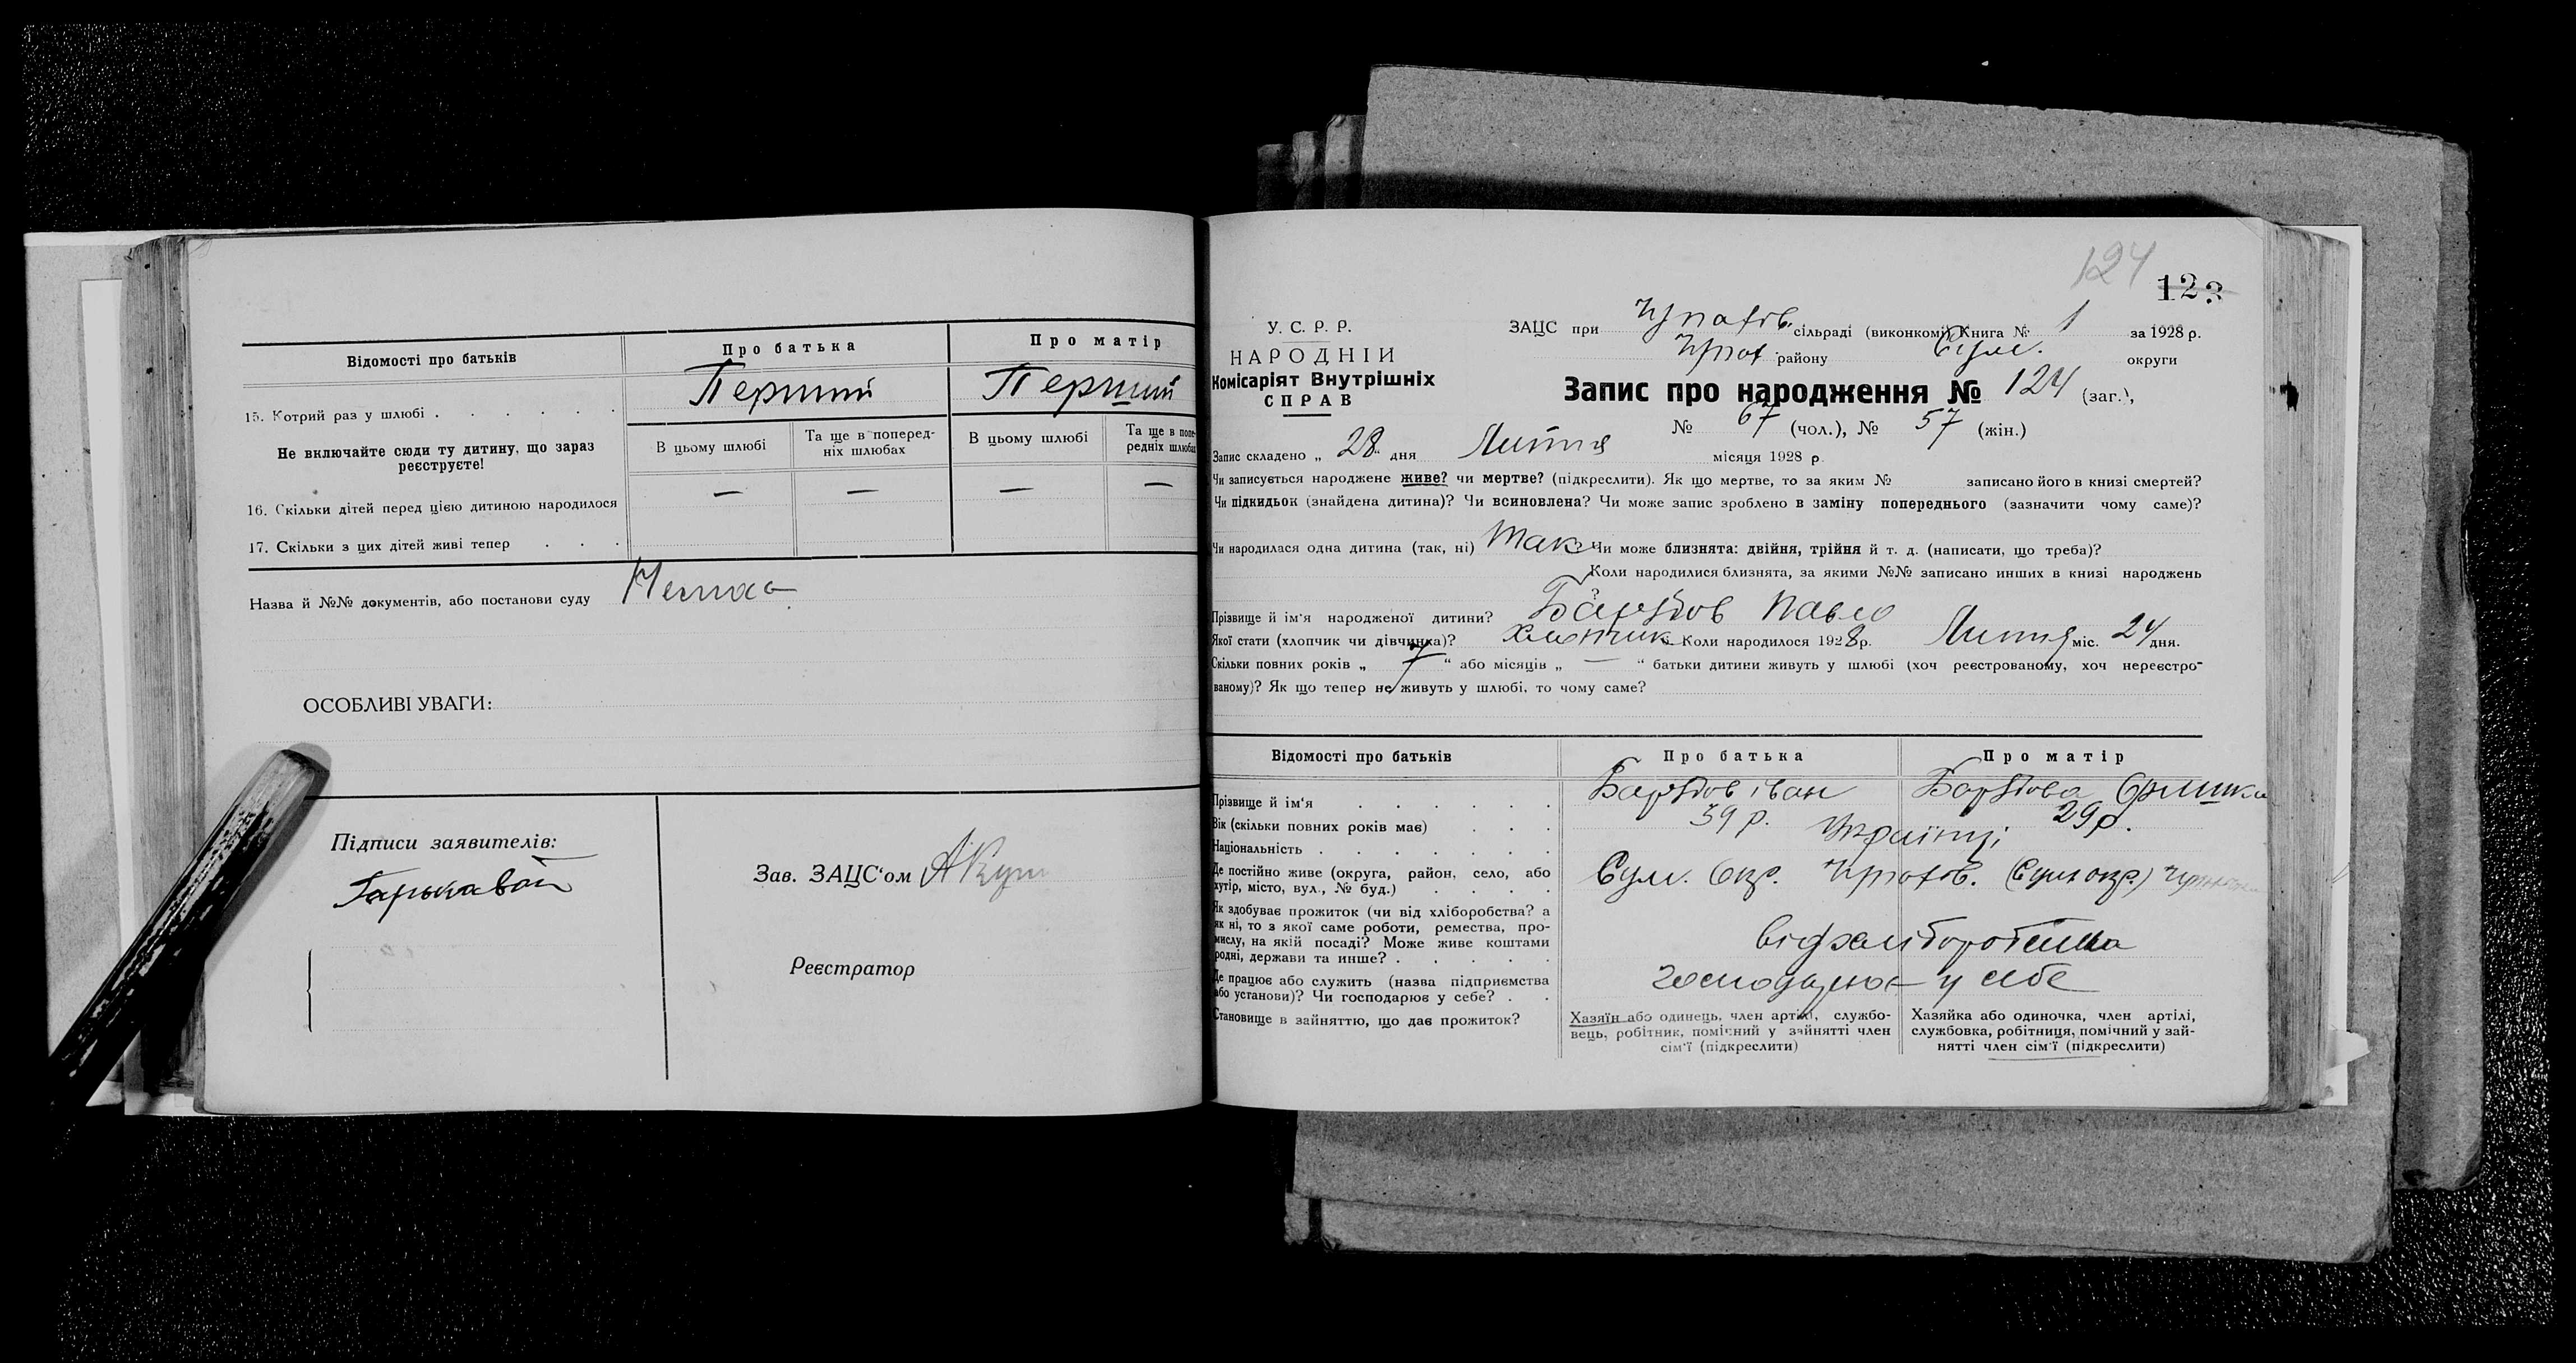 Відомості про батьків
Про батька
Про матір
15. Котрий раз у шлюбі
Перший
Перший
Не включайте сюди ту дитину, що зараз реєструєте!
В цьому шлюбі
Та ще в поперед-
ніх шлюбах
В цьому шлюбі
Та ще в попе-
редніх шлюбах
16. Скільки дітей перед цією дитиною народилося
— — — —
17. Скільки з цих дітей живі тепер
Назва й №№ документів, або постанови суду
Немає
ОСОБЛИВІ УВАГИ:
Підписи заявителів:
Зав. ЗАЦС‘ом
Реєстратор
124
123
У. С. Р. Р.
НАРОДНІЙ
Комісаріят Внутрішніх
СПРАВ
ЗАЦС при сільраді (виконкомі) Книга № 1 за 1928 р.
району Сум. округи
Запис про народження № 124 (заг.),
№ 67 (чол.), № 57 (жін.)
Запис складено „ 28 “ дня Липня місяця 1928 р.
Чи записується народжене живе? чи мертве? (підкреслити). Як що мертве, то за яким № записано його в книзі смертей?
Чи підкидьок (знайдена дитина)? Чи всиновлена? Чи може запис зроблено в заміну попереднього (зазначити чому саме)?
Чи народилася одна дитина (так, ні) Так Чи може близнята: двійня, трійня й т. д. (написати, що треба)?
Коли народилися близнята, за якими №№ записано инших в книзі народжень
?
Прізвище й ім‘я народженої дитини? Павло
Якої стати (хлопчик чи дівчинка)? Хлопчик Коли народилося 1928 р. Липня міс. 24 дня.
Скільки повних років „ 7 “ або місяців „ — “ батьки дитини живуть у шлюбі (хоч реєстрованому, хоч нереєстро-
ваному)? Як що тепер не живуть у шлюбі, то чому саме?
Відомості про батьків
Про батька
Про матір
Прізвище й ім‘я
Іван
Оришка
Вік (скільки повних років має)
39 р.
29 р.
Національність
Українці
Де постійно живе (округа, район, село, або
хутір, місто, вул., № буд.)
Сум. Окр. (Сум окр.)
Як здобуває прожиток (чи від хліборобства? а
як ні, то з якої саме роботи, ремества, про-
мислу, на якій посаді? Може живе коштами
родні, держави та инше?
від хліборобства
Де працює або служить (назва підприємства
або установи)? Чи господарює у себе?
господарює у себе
Становище в зайняттю, що дає прожиток?
Хазяїн або одинець, член артілі, службо-
вець, робітник, помічний у зайнятті член
сім‘ї (підкреслити)
Хазяйка або одиночка, член артілі,
службовка, робітниця, помічний у зай-
нятті член сім‘ї (підкреслити)